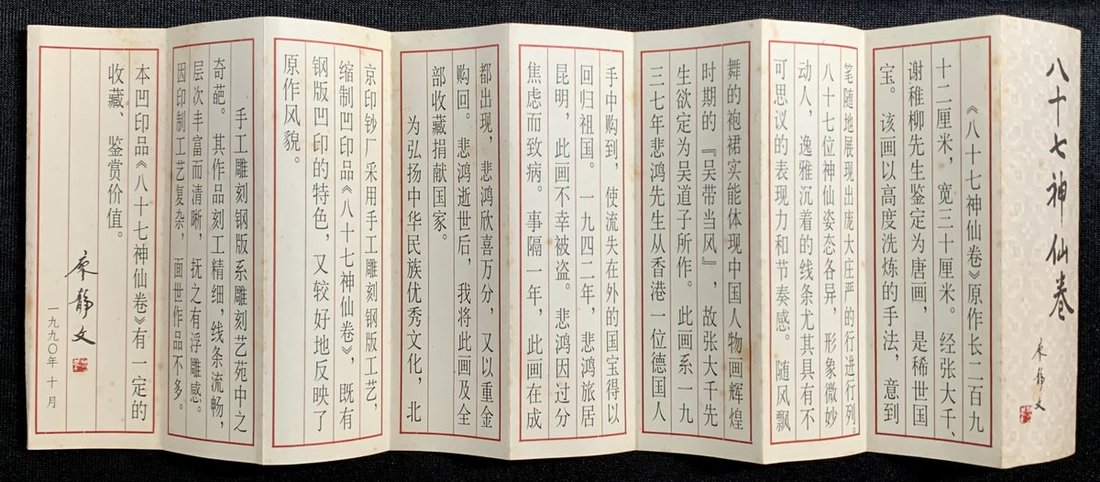 八十七神仙卷
《八十七神仙卷》原作长二百九
十二厘米，宽三十厘米。经张大千、
谢稚柳先生鉴定为唐画，是稀世国
宝。该画以高度洗炼的手法，意到
笔随地展现出庞大庄严的行进行列，
八十七位神仙姿态各异，形象微妙
动人，逸雅沉着的线条尤其具有不
可思议的表现力和节奏感。随风飘
舞的袍裙实能体现中国人物画辉煌
时期的『吴带当风』，故张大千先
生欲定为吴道子所作。此画系一九
三七年悲鸿先生从香港一位德国人
手中购到，使流失在外的国宝得以
回归祖国。一九四二年，悲鸿旅居
昆明，此画不幸被盗。悲鸿因过分
焦虑而致病。事隔一年，此画在成
都出现，悲鸿欣喜万分，又以重金
购回。悲鸿逝世后，我将此画及全
部收藏捐献国家。
为弘扬中华民族优秀文化，北
京印钞厂采用手工雕刻钢版工艺，
缩制凹印品《八十七神仙卷》，既有
钢版凹印的特色，又较好地反映了
原作风貌。
手工雕刻钢版系雕刻艺苑中之
奇葩。其作品刻工精细，线条流畅，
层次丰富而清晰，抚之有浮雕感。
因印制工艺复杂，面世作品不多。
本凹印品《八十七神仙卷》有一定的
收藏、鉴赏价值。
一九九〇年十月